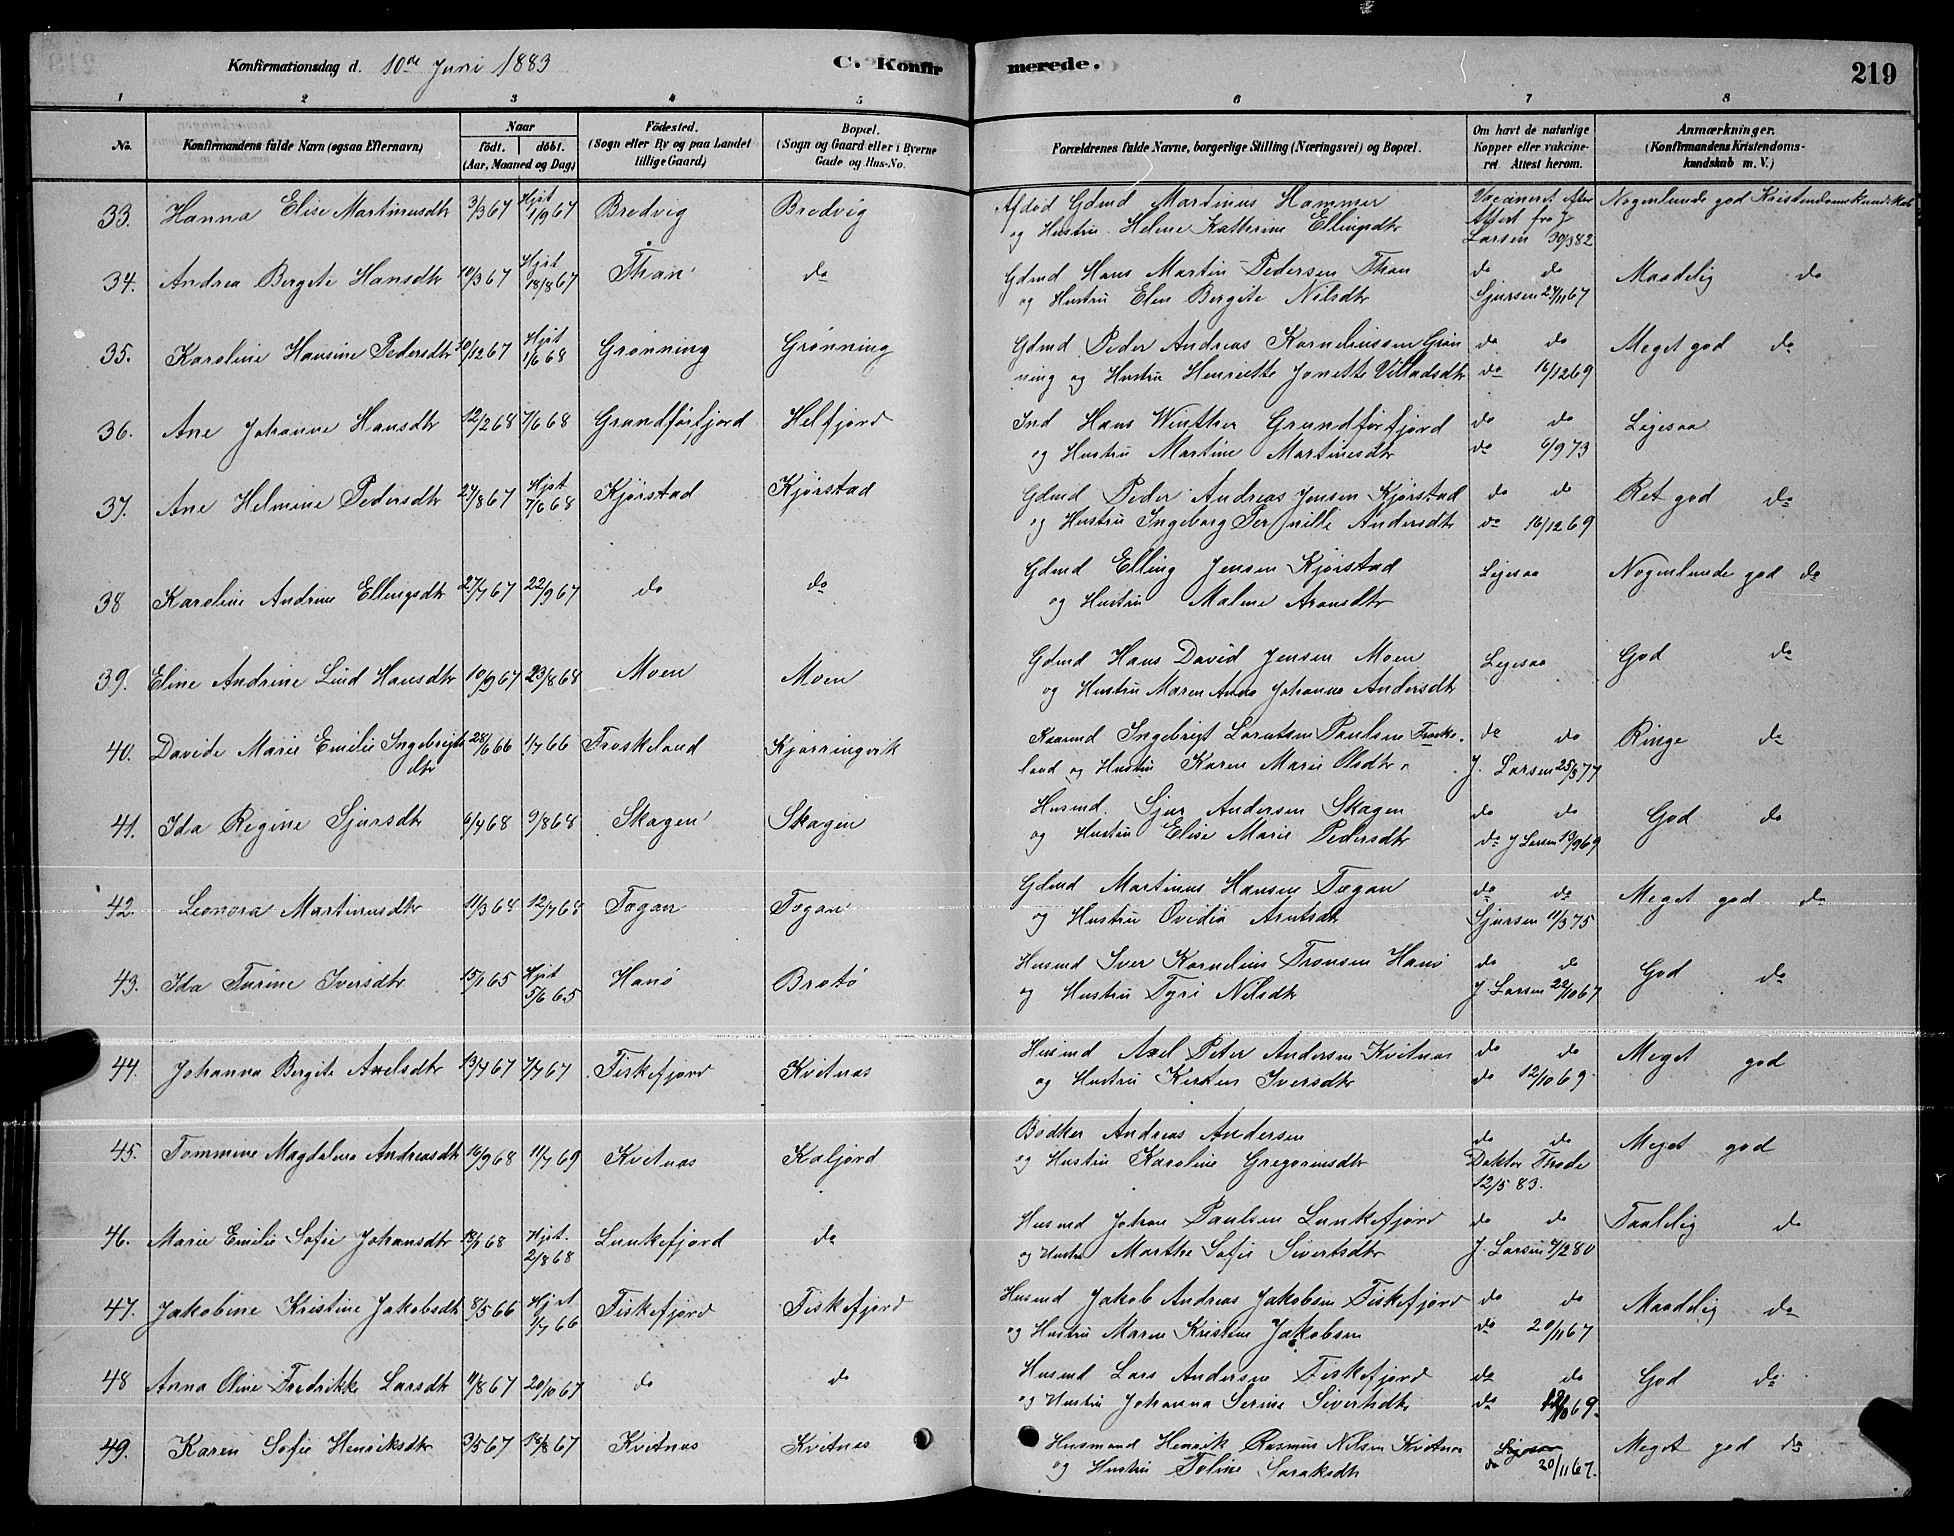 Konfirmationsdag d. 10de Juni 1883 C. Konfir merede. 219
1 2 3 4 5 6 7 8
No. Konfirmandens fulde Navn (ogsaa Efternavn) Naar födt. döbt. (Aar, Maaned og Dag) Födested. (Sogn eller By og paa Landet tillige Gaard) Bopæl. (Sogn og Gaard eller i Byerne Gade og Hus-No. Forældrenes fulde Navne, borgerlige Stilling (Næringsvei) og Bopæl. Om havt de naturlige Kopper eller vakcineret. Attest herom. Anmærkninger. (Konfirmandens Kristendomskundskab m. V.)
33. Hanna Elise Martinusdtr 3/3 67 Hjst 1/9 67 Bredvig Bredvig Afdød Gdmd Martinus Hammer Vaccineret efter Nogenlunde god Kristendomskundskab
og Hustru Helene Katherine Ellingsdtr Attest fra J Larsen 30/3 82
34. Andrea Bergete Hansdtr 10/3 67 Hjst 18/8 67 Than do Gdmd Hans Martin Pedersen Than do do Maadelig do
og Hustru Elen Bergite Nilsdtr Sjursen 24/11 67
35. Karoline Hansine Pedersdtr 10/12 67 Hjst 1/6 68 Grønning Grønning Gdmd Peder Andreas Korneliussen Grøn do do Meget god do
ning og Hustru Henriette Jonette Villadsdtr do 16/12 69
36. Ane Johanne Hansdtr 12/2 68 7/6 68 Grundførfjord Helfjord Ind Hans Winther Grundførfjord do do Ligesaa
og Hustru Martine Martinesdtr do 6/9 73
37. Ane Helmine Pedersdtr 27/8 67 Hjst 7/6 68 Kjørstad Kjørstad Gdmd Peder Andreas Jensen Kjørstad do do Ret god do
og Hustru Ingeborg Pernille Andersdtr do 16/12 69
38 Karoline Andrine Ellingsdtr 27/7 67 22/9 67 do do Gdmd Elling Jensen Kjørstad Ligesaa Nogenlunde god do
og Hustru Malene Aronsdtr
39. Eline Andrine Lind Hansdtr 10/9 67 23/8 68 Moen Moen Gdmd Hans David Jensen Moen Ligesaa God do
og Hustru Maren Anna Johanna Andersdtr
40. Davide Marie Emilie Ingebrigtsdtr 28/6 66 1/7 66 Froskeland Kjørringvik Kaarmd Ingebrigt Lorntsen Paulsen Froske. do do Ringe do
land og Hustru Karen Marie Olsdtr J. Larsen 25/3 77
41. Ida Regine Sjursdtr 6/4 68 9/8 68 Skagen Skagen Husmd. Sjur Andersen Skagen do do God do
og Hustru Elise Marie Pedersdtr do J Larsen 13/9 69
42. Leonora Martinusdtr 11/3 68 12/7 68 Togan Togan Gdmd Martinus Hansen Togan do do Meget god do
og Hustru Ovidia Arntsdtr Sjursen 11/3 75
43. Ida Turine Iversdtr 15/1 65 Hjst 5/6 65 Hanø Brotø Husmd Iver Kornelius Tronsen Hanø do do God do
og Hustru Tyri Nilsdtr J. Larsen 22/10 67
44. Johanna Bergite Axelsdtr 13/4 67 7/7 67 Fiskefjord Kvitnæs Husmd Axel Peter Andersen Kvitnæs do do Meget god
og Hustru Kirsten Iversdtr do 12/10 69
45. Tommine Magdalena Andreasdtr 16/9 68 11/7 69 Kvitnæs Kaljord Bødker Andreas Andersen do do Meget god
og Hustru Karoline Gregoriusdtr Doktor Thode 12/5 83.
46. Marie Emilie Sofie Johansdtr 18/1 68 Hjst. 2/8 68 Lunkefjord do Husmd Johan Paulsen Lunkefjord do do Taalelig do
og Hustru Marthe Sofie Sivertsdtr J. Larsen 4/2 80
47. Jakobine Kristine Jakobsdtr 8/5 66 Hjst 1/7 66 Fiskefjord Fiskefjord Husmd Jakob Andreas Jakobsen Fiskefjord do do Maadelig do
og Hustru Maren Kristine Jakobsen do 20/11 67
48 Anna Oline Fredrikke Larsdtr 11/8 67 20/10 67 do do Husmd Lars Andersen Fiskefjord do do God do
og Hustru Johanna Serine Sivertsdtr do 12/10 69.
49. Karen Sofie Henriksdtr 3/5 67 18/8 67 Kvitnæs Kvitnæs Husmand Henrik Rasmus Nilsen Kvitnæs Ligesaa Meget god do
og Hustru Toline Saraksdtr do 20/11 67.